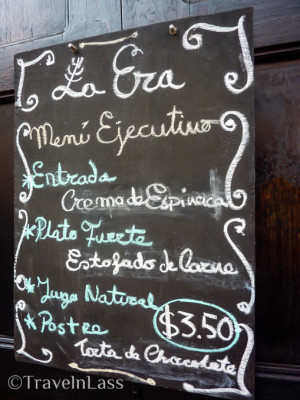 La Era
Menú Ejecutivo
*Entrada
Crema de Espinaca
*Plato Fuerte
Estofado de Carne
*Jugo Natural
*Postre
$3.50
Torta de Chocolate
©TravelnLass